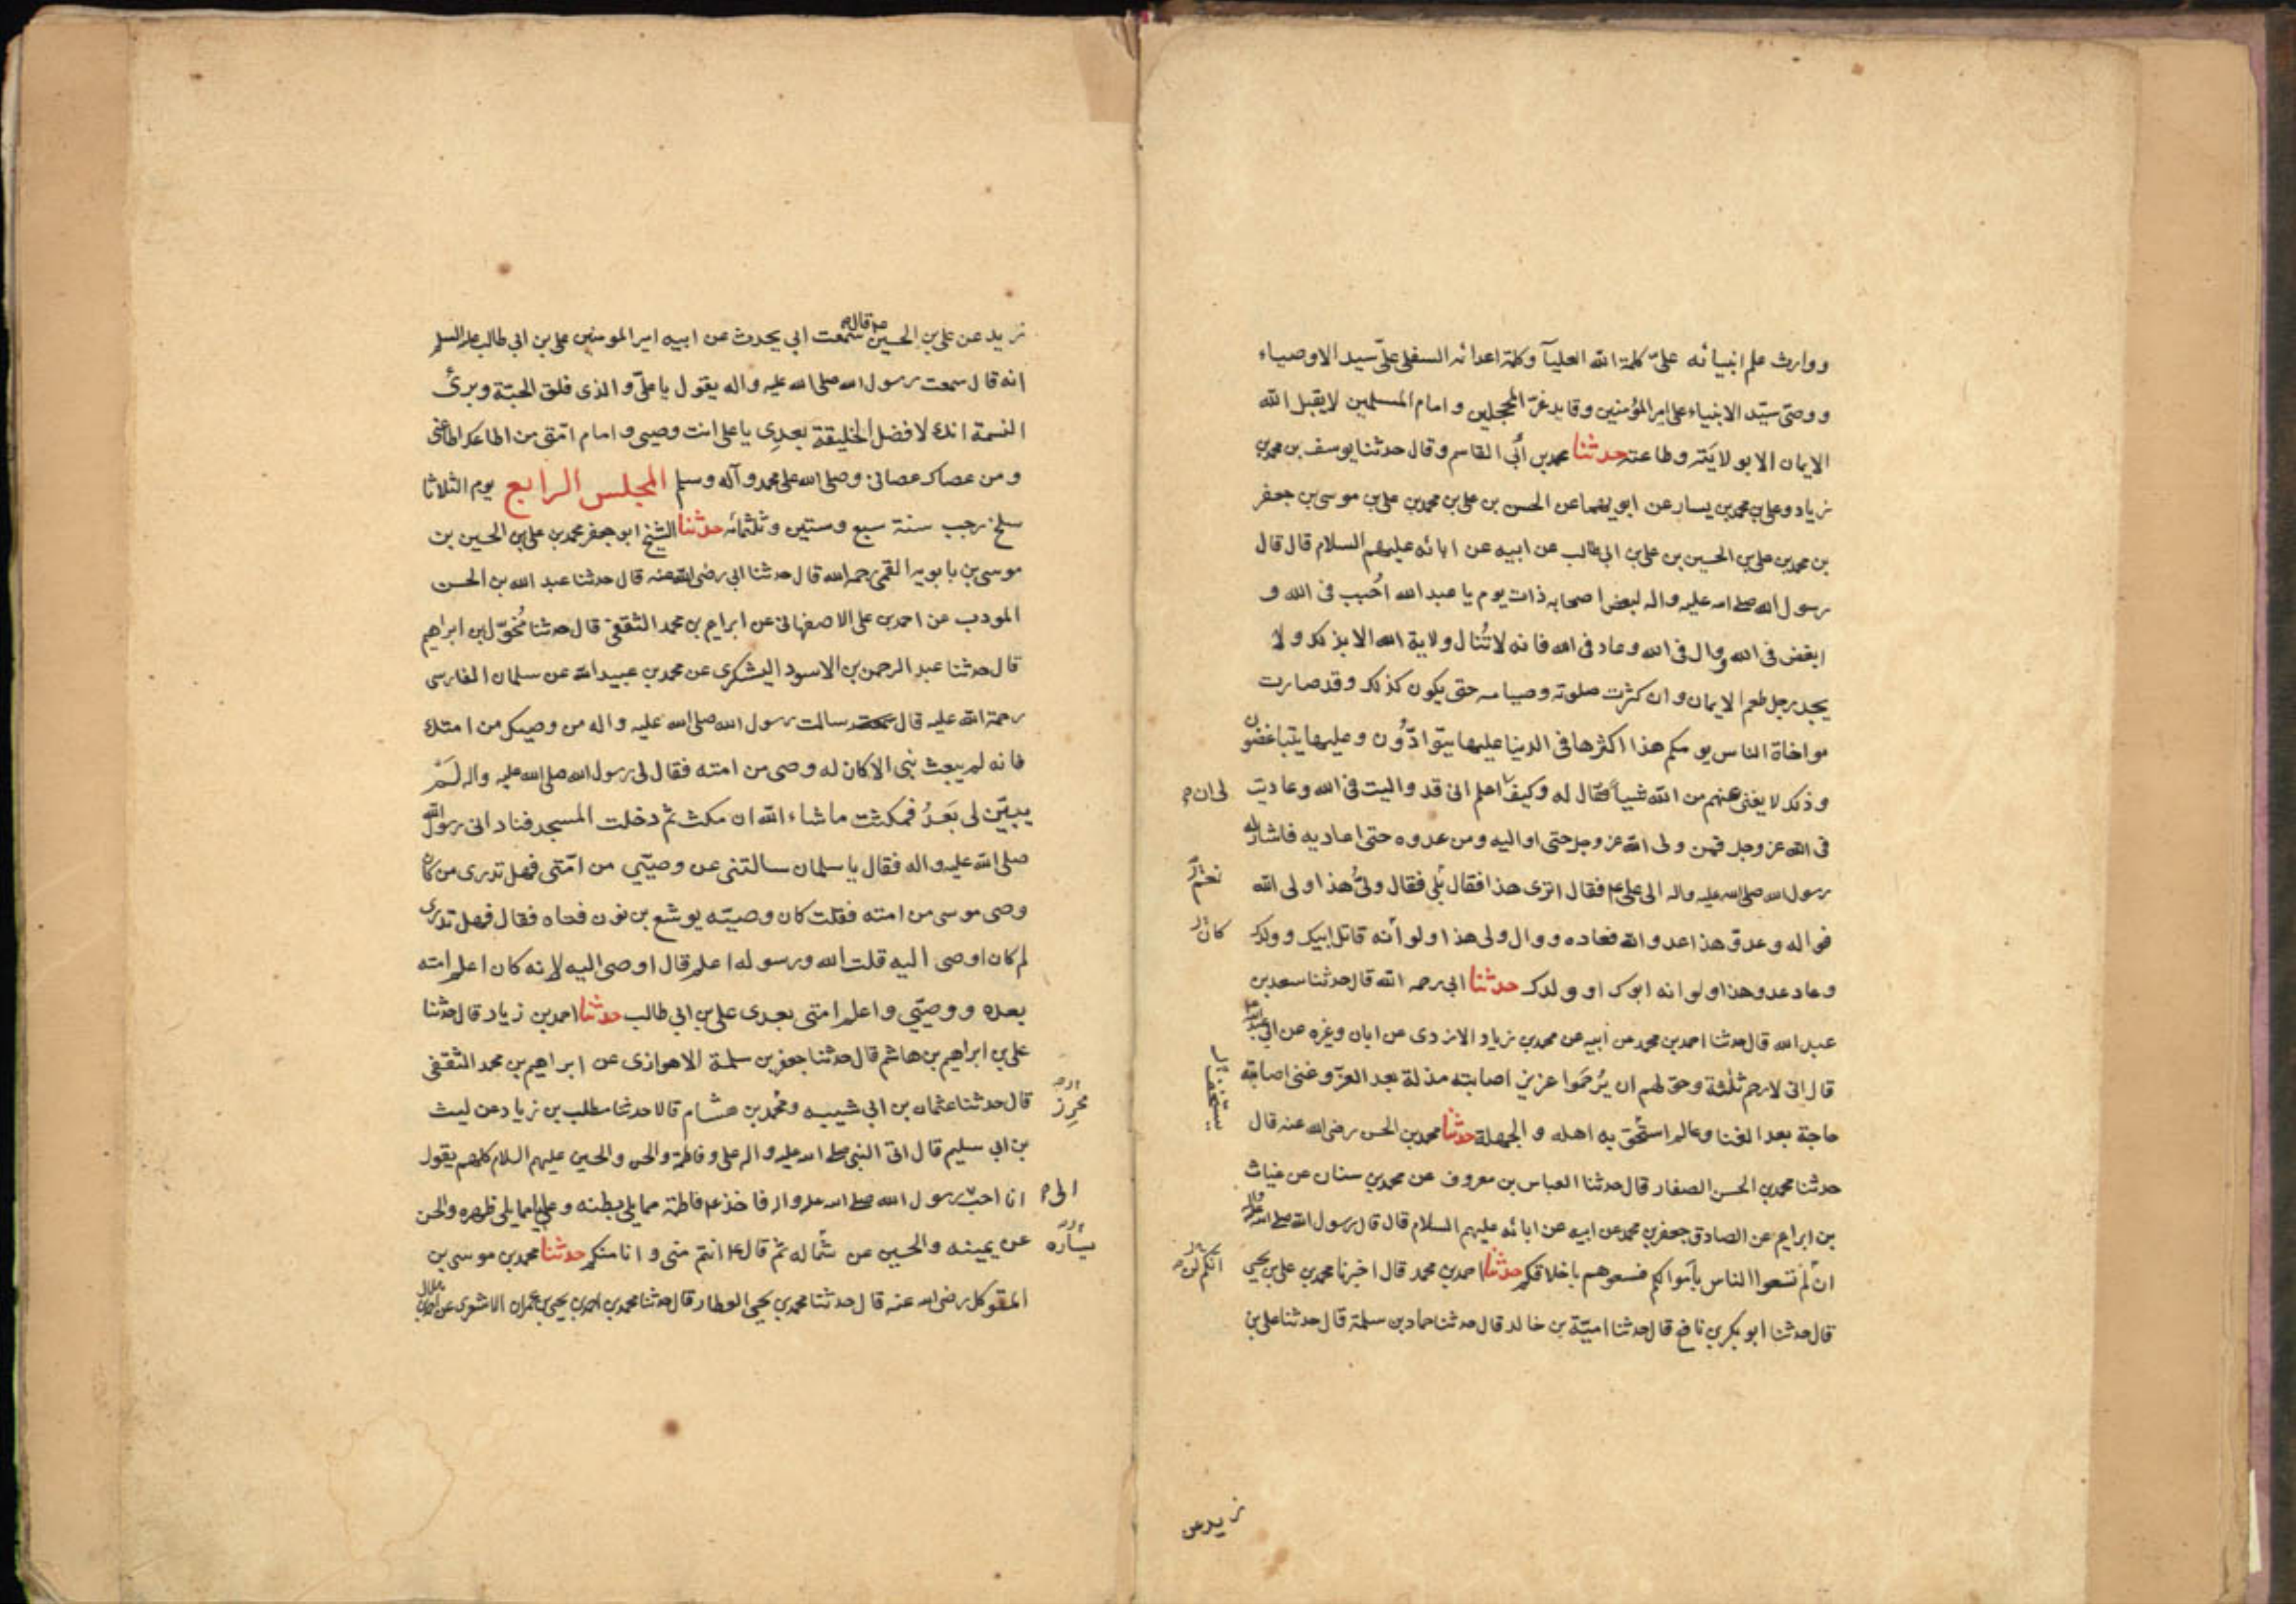 ووارث علم انبيائه علىّ كلمة الله العليآ وكلمة اعدائه السفلى علىّ سيد الاوصياء
ووصىّ سيّد الانبياء على امير المؤمنين وقايد غرّ المحجلين وامام المسلمين لا يقبل الله
الايمان الا بولايته وطاعته حدثنا محمد بن أبى القاسم وقال حدثنا يوسف بن محمد بن
زياد وعلى بن محمد بن يسار عن ابويهما عن الحسن بن على بن محمد بن على بن موسى بن جعفر
بن محمد بن على بن الحسين بن على بن ابى طالب عن ابيه عن ابائه عليهم السلام قال قال
رسول الله صلى الله عليه واله لبعض اصحابه ذات يوم يا عبد الله احُبب فى الله و
ابغض فى الله ووال فى الله وعاد فى الله فانه لا تُنال ولاية الله الا بذلك ولا
يجد رجل طعم الايمان وان كثرت صلوته وصيامه حتى يكون كذلك وقد صارت
مواخاة الناس يومكم هذا اكثرها فى الدنيا عليها يتوادّون وعليها يتباغضون
وذلك لا يغنى عنهم من الله شيأ فقال له وكيف اعلم انى قد واليت فى الله وعاديت
لى ان
فى الله عز وجل فمن ولى الله عز وجل حتى اواليه ومن عدوه حتى اعاديه فاشار له
رسول الله صلى الله عليه واله الى على ع فقال اترى هذا فقال بلى فقال ولىّ هذا اولى الله
نعم
فواله وعدوّ هذا عدو الله فعاده ووال ولى هذا ولو أنه قاتل ابيك وولدك
كان
وعاد عدو هذا ولو انه ابوك او ولدك حدثنا ابى رحمه الله قال حدثنا سعد بن
عبد الله قال حدثنا احمد بن محمد عن أبيه عن محمد بن زياد الازدى عن ابان وغيره عن ابى عبد الله
قال انى لارحم ثلثة وحق لهم ان يُرحَموا عزيز اصابته مذلة بعد العزّ وغنى اصابته
يستخف
حاجة بعد الغنا وعالم استُحق به اهله والجهلة حدثنا محمد بن الحسن رضى الله عنه قال
حدثنا محمد بن الحسن الصفار قال حدثنا العباس بن معروف عن محمد بن سنان عن غياث
بن ابراهيم عن الصادق جعفر بن محمد عن ابيه عن ابائه عليهم السلام قال قال رسول الله صلى الله عليه واله
ان لم تسعوا الناس بأموالكم فسعوهم باخلاقكم حدثنا احمد بن محمد قال اخبرنا محمد بن على بن يحيى
انكم لن
قال حدثنا ابو بكر بن نافع قال حدثنا اميّة بن خالد قال حدثنا حماد بن سلمة قال حدثنا على بن
زيد عن
زيد عن على بن الحسين ع قال سمعت ابى يحدث عن ابيه امير المومنين على بن ابى طالب عليه السلم
انه قال سمعت رسول الله صلى الله عليه واله يقول يا علىّ والذى فلق الحبّة وبرئ
النسمة انك لافضل الخليقة بعدِى يا على انت وصيى وامام امّتى من اطاعك اطاعنى
ومن عصاك عصانى وصلى الله على محمد وآله وسلم المجلس الرابع يوم الثلاثا
سلخ رجب سنة سبع وستين وثلثمائه حدثنا الشيخ ابو جعفر محمد بن على بن الحسين بن
موسى بن بابويه القمى رحمه الله قال حدثنا ابى رضى الله عنه قال حدثنا عبد الله بن الحسن
المودب عن احمد بن على الاصفهانى عن ابراهيم بن محمد الثقفى قال حدثنا مُخوّل بن ابراهيم
قال حدثنا عبد الرحمن بن الاسود اليشكرى عن محمد بن عبيد الله عن سلمان الفارسى
رحمة الله عليه قال سالت رسول الله صلى الله عليه واله من وصيك من امتك
فانه لم يبعث نبى الا كان له وصى من امته فقال لى رسول الله صلى الله عليه واله لَمْ
يبيّن لى بَعدُ فمكثت ما شاء الله ان مكث ثم دخلت المسجد فنادانى رسول الله
صلى الله عليه واله فقال يا سلمان سالتنى عن وصيّيى من امّتى فهل تدرى من كان
وصى موسى من امته فقلت كان وصيّه يوشع بن نون فتاه فقال فهل تدرى
لم كان اوصى اليه قلت الله ورسوله اعلم قال اوصى اليه لانه كان اعلم امته
بعده ووصيّى واعلم امتى بعدى على بن ابى طالب حدثنا احمد بن زياد قال حدثنا
على بن ابراهيم بن هاشم قال حدثنا جعفر بن سلمة الاهوازى عن ابراهيم بن محمد الثقفى
قال حدثنا عثمان بن ابى شيبه ومحمد بن هشام قالا حدثنا مطلب بن زياد عن ليث
محرِز
بن ابى سليم قال اتى النبى صلى الله عليه واله على وفاطمة والحسن والحسين عليهم السلام كلهم يقول
انا احب رسول الله صلى الله عليه واله فاخذ ع فاطمة مما يلى بطنه وعليا مما يلى ظهره والحسن
الى
عن يمينه والحسين عن شماله ثم قال ع انتم منى وانا منكم حدثنا محمد بن موسى بن
يساره
المتوكل رضى الله عنه قال حدثنا محمد بن يحيى العطار قال حدثنا محمد بن احمد بن يحيى بن عمران الاشعرى عن احمد بن هلال